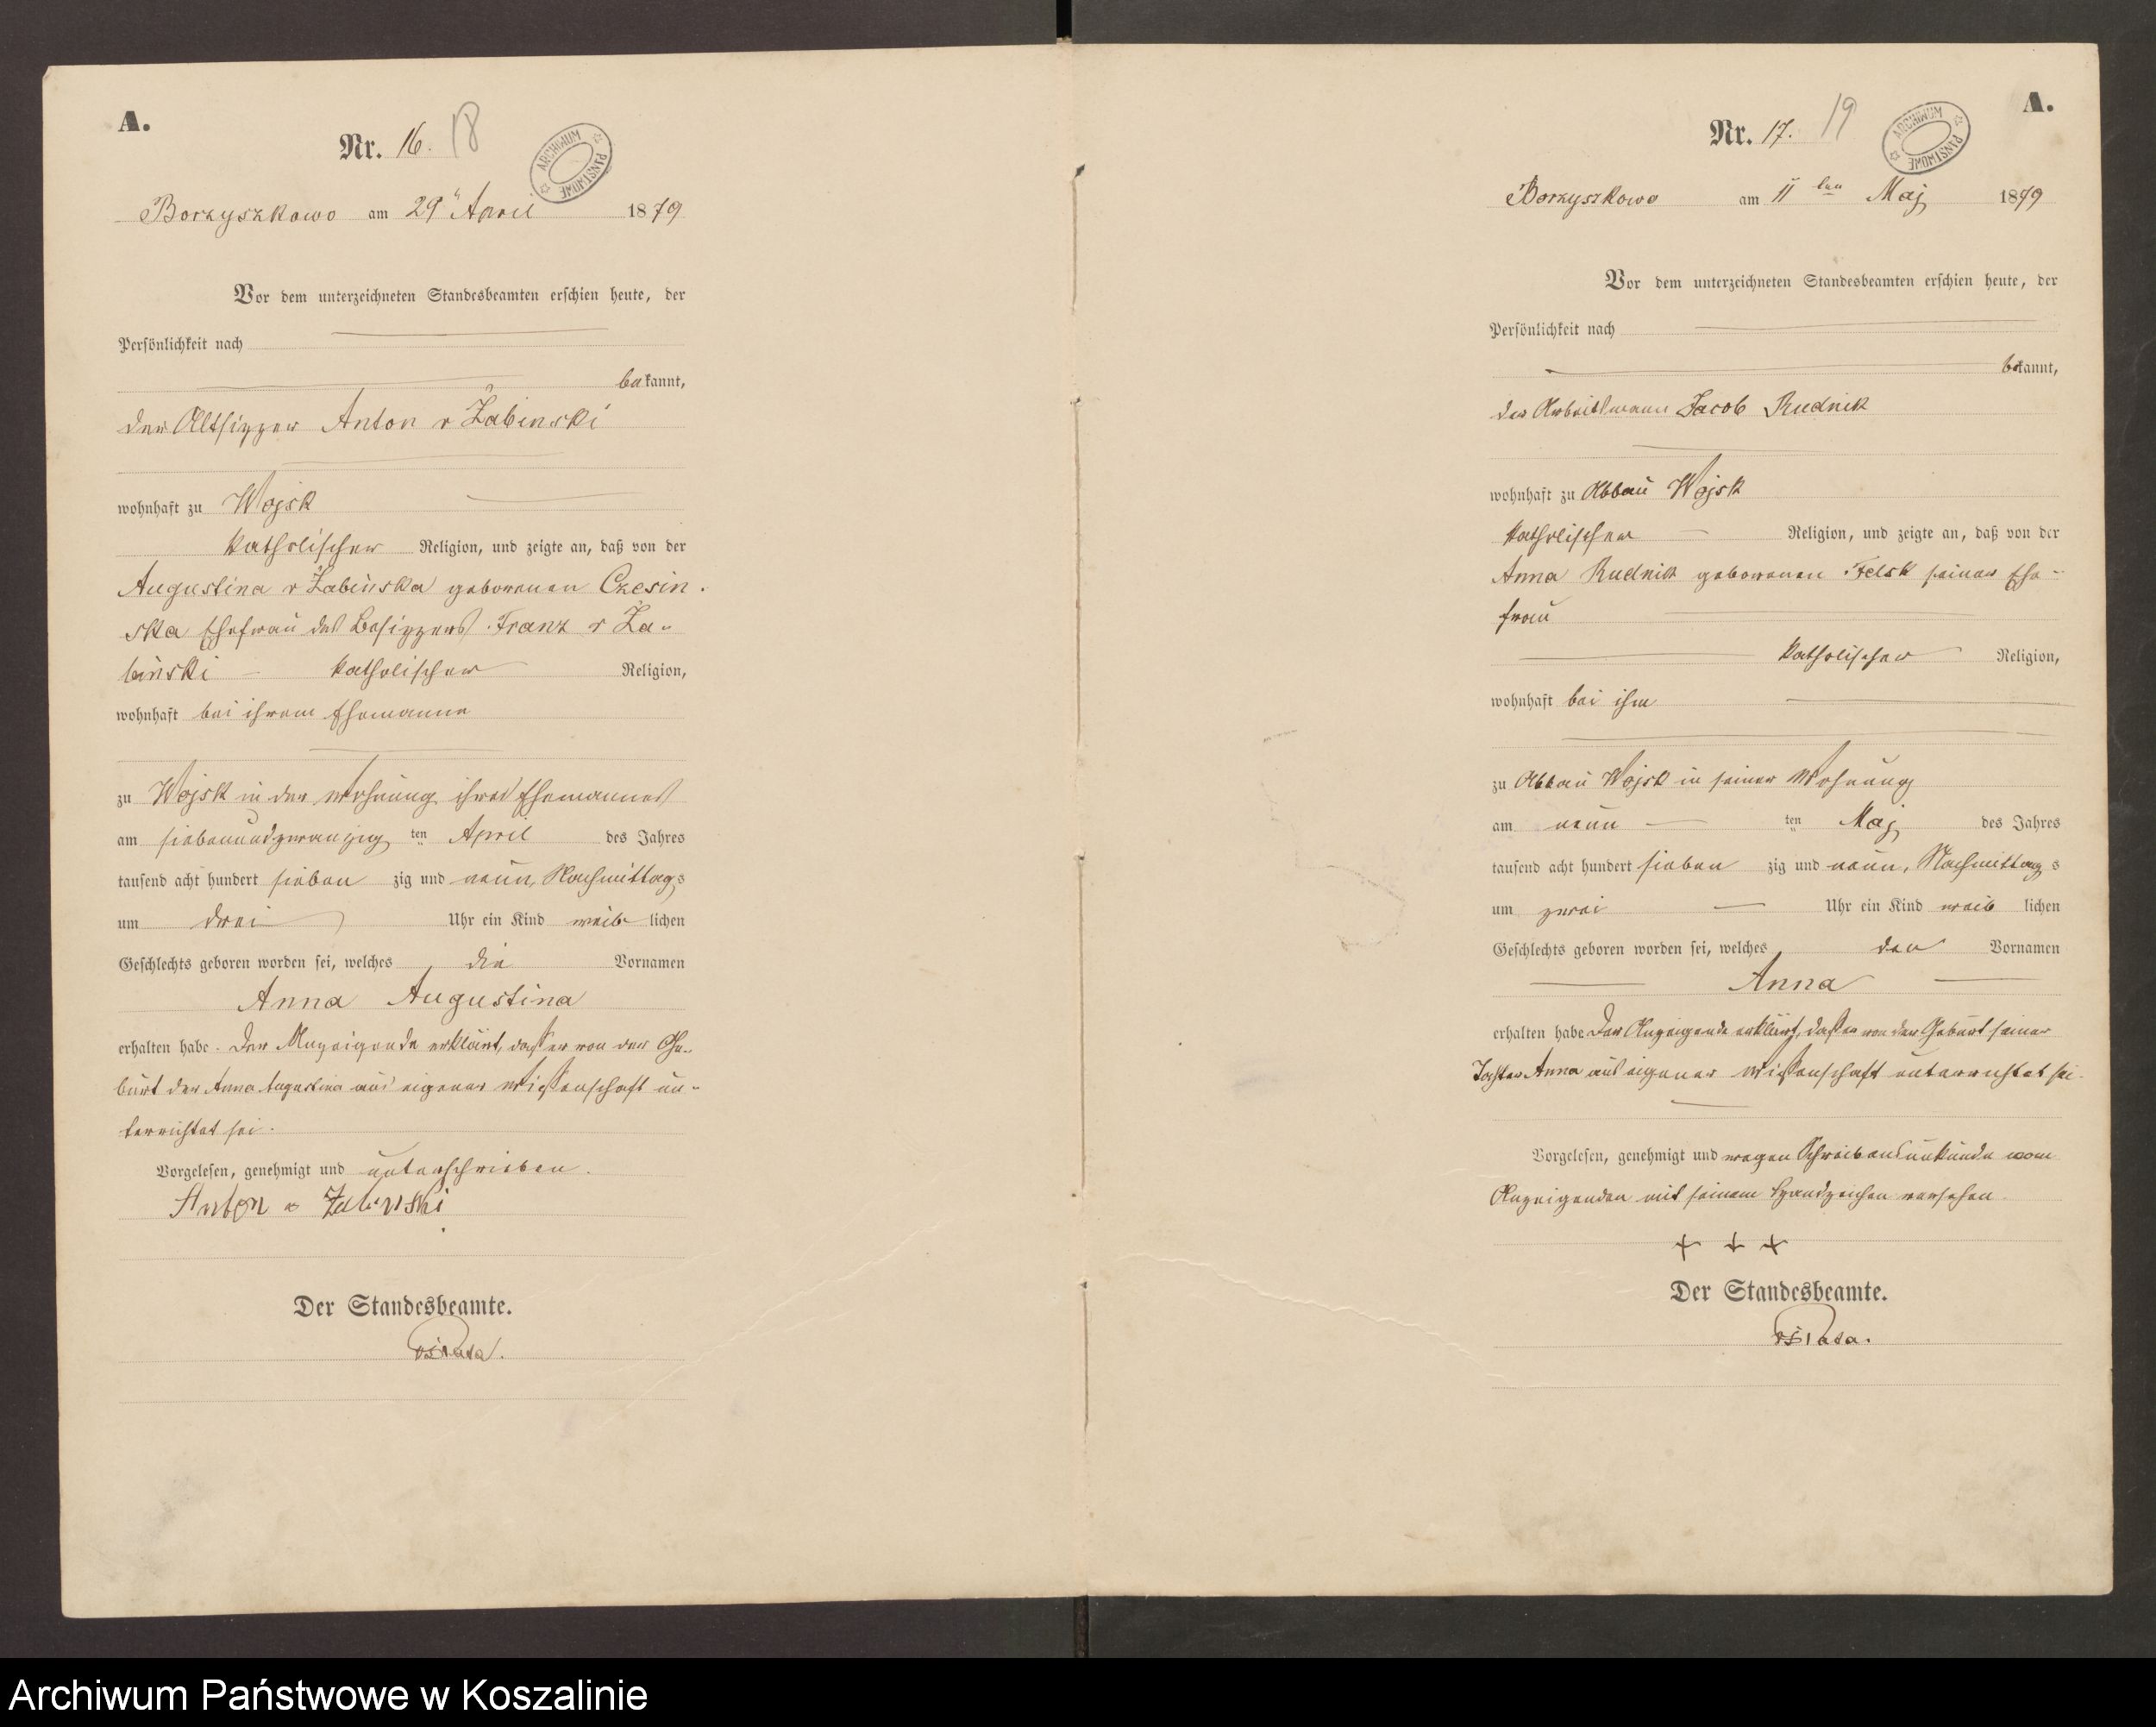 A.
Nr. 16. 18
ARCHIWUM PAŃSTWOWE
Borzyszkowo am 29" April 1879
Vor dem unterzeichneten Standesbeamten erschien heute, der
Persönlichkeit nach
bekannt,
der Altsitzer Anton v Żabinski
wohnhaft zu Wojsk
katholischer Religion, und zeigte an, daß von der
Augustina v Żabińska geborenen Czesin-
ska Ehefrau des Besitzers Franz v Ża-
biński katholischer Religion,
wohnhaft bei ihrem Ehemanne
zu Wojsk in der Wohnung ihres Ehemannes
am siebenundzwanzig ten April des Jahres
tausend acht hundert sieben zig und neun, Nachmittags
um drei Uhr ein Kind weib lichen
Geschlechts geboren worden sei, welches die Vornamen
Anna Augustina
erhalten habe. Der Anzeigende erklärt, daß er von der Ge-
burt der Anna Augustina aus eigener Wissenschaft un-
terrichtet sei.
Vorgelesen, genehmigt und unterschrieben.
Anton v Zabinski
Der Standesbeamte.
A.
Nr. 17. 19
ARCHIWUM PAŃSTWOWE
Borzyszkowo am 11 ten Maj 1879
Vor dem unterzeichneten Standesbeamten erschien heute, der
Persönlichkeit nach
bekannt,
der Arbeitsmann Jacob Rudnik
wohnhaft zu Abbau Wojsk
katholischer Religion, und zeigte an, daß von der
Anna Rudnik geborenen Felsk seiner Ehe-
frau
katholischer Religion,
wohnhaft bei ihm
zu Abbau Wojsk in seiner Wohnung
am neun ten Maj des Jahres
tausend acht hundert sieben zig und neun, Nachmittags
um zwei Uhr ein Kind weib lichen
Geschlechts geboren worden sei, welches den Vornamen
Anna
erhalten habe Der Anzeigende erklärt, daß er von der Geburt seiner
Tochter Anna aus eigener Wissenschaft unterrichtet sei.
Vorgelesen, genehmigt und wegen Schreibensunkunde vom
Anzeigenden mit seinem Handzeichen versehen.
+ + +
Der Standesbeamte.
Archiwum Państwowe w Koszalinie